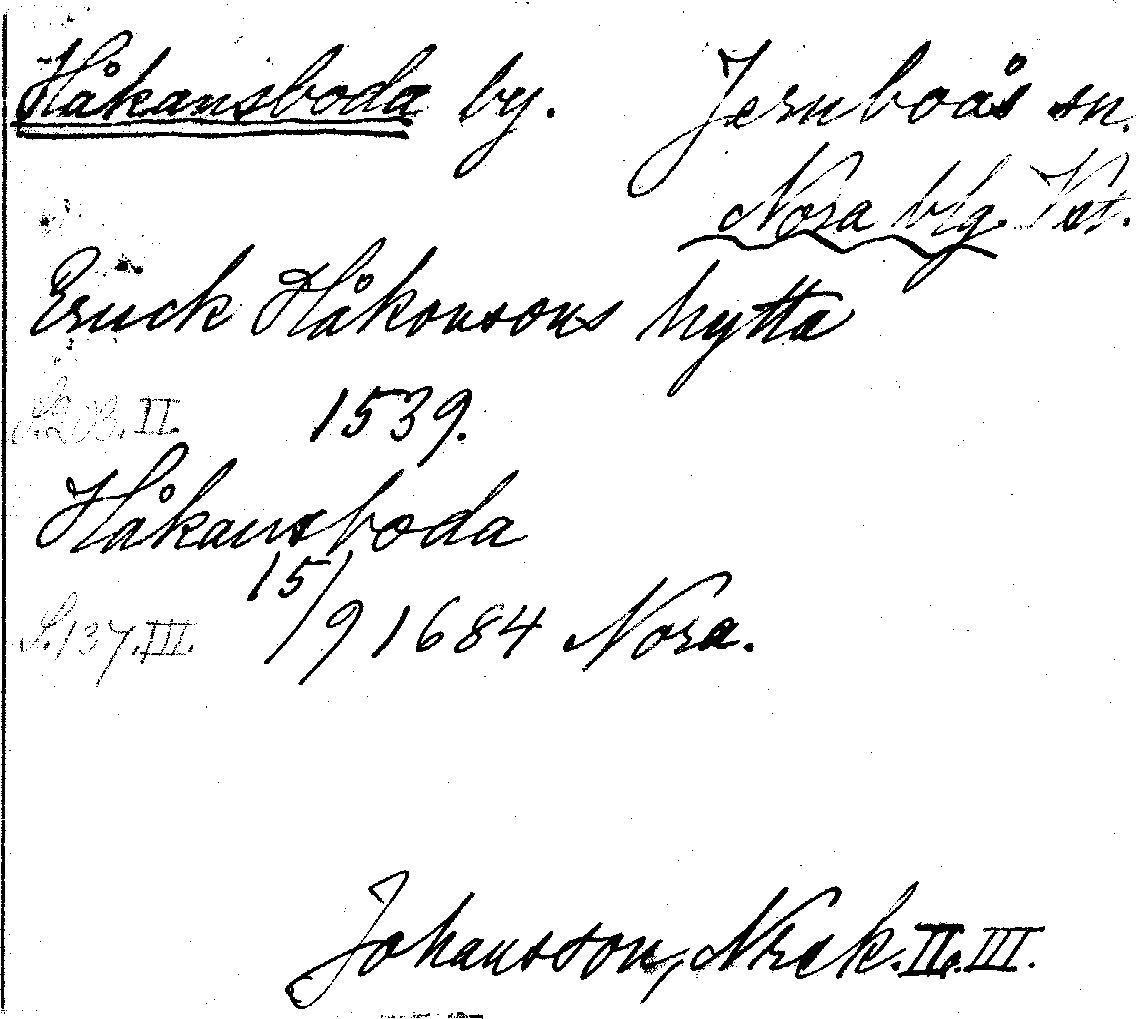 Håkansboda by. Jernboås sn.
Nora blg. Vst.
Erick Håkonsons hytta
S. 203. II. 1539.
Håkansboda
S. 137. III. 15/9 1684 Nora.
Johansson, Norak. II. III.